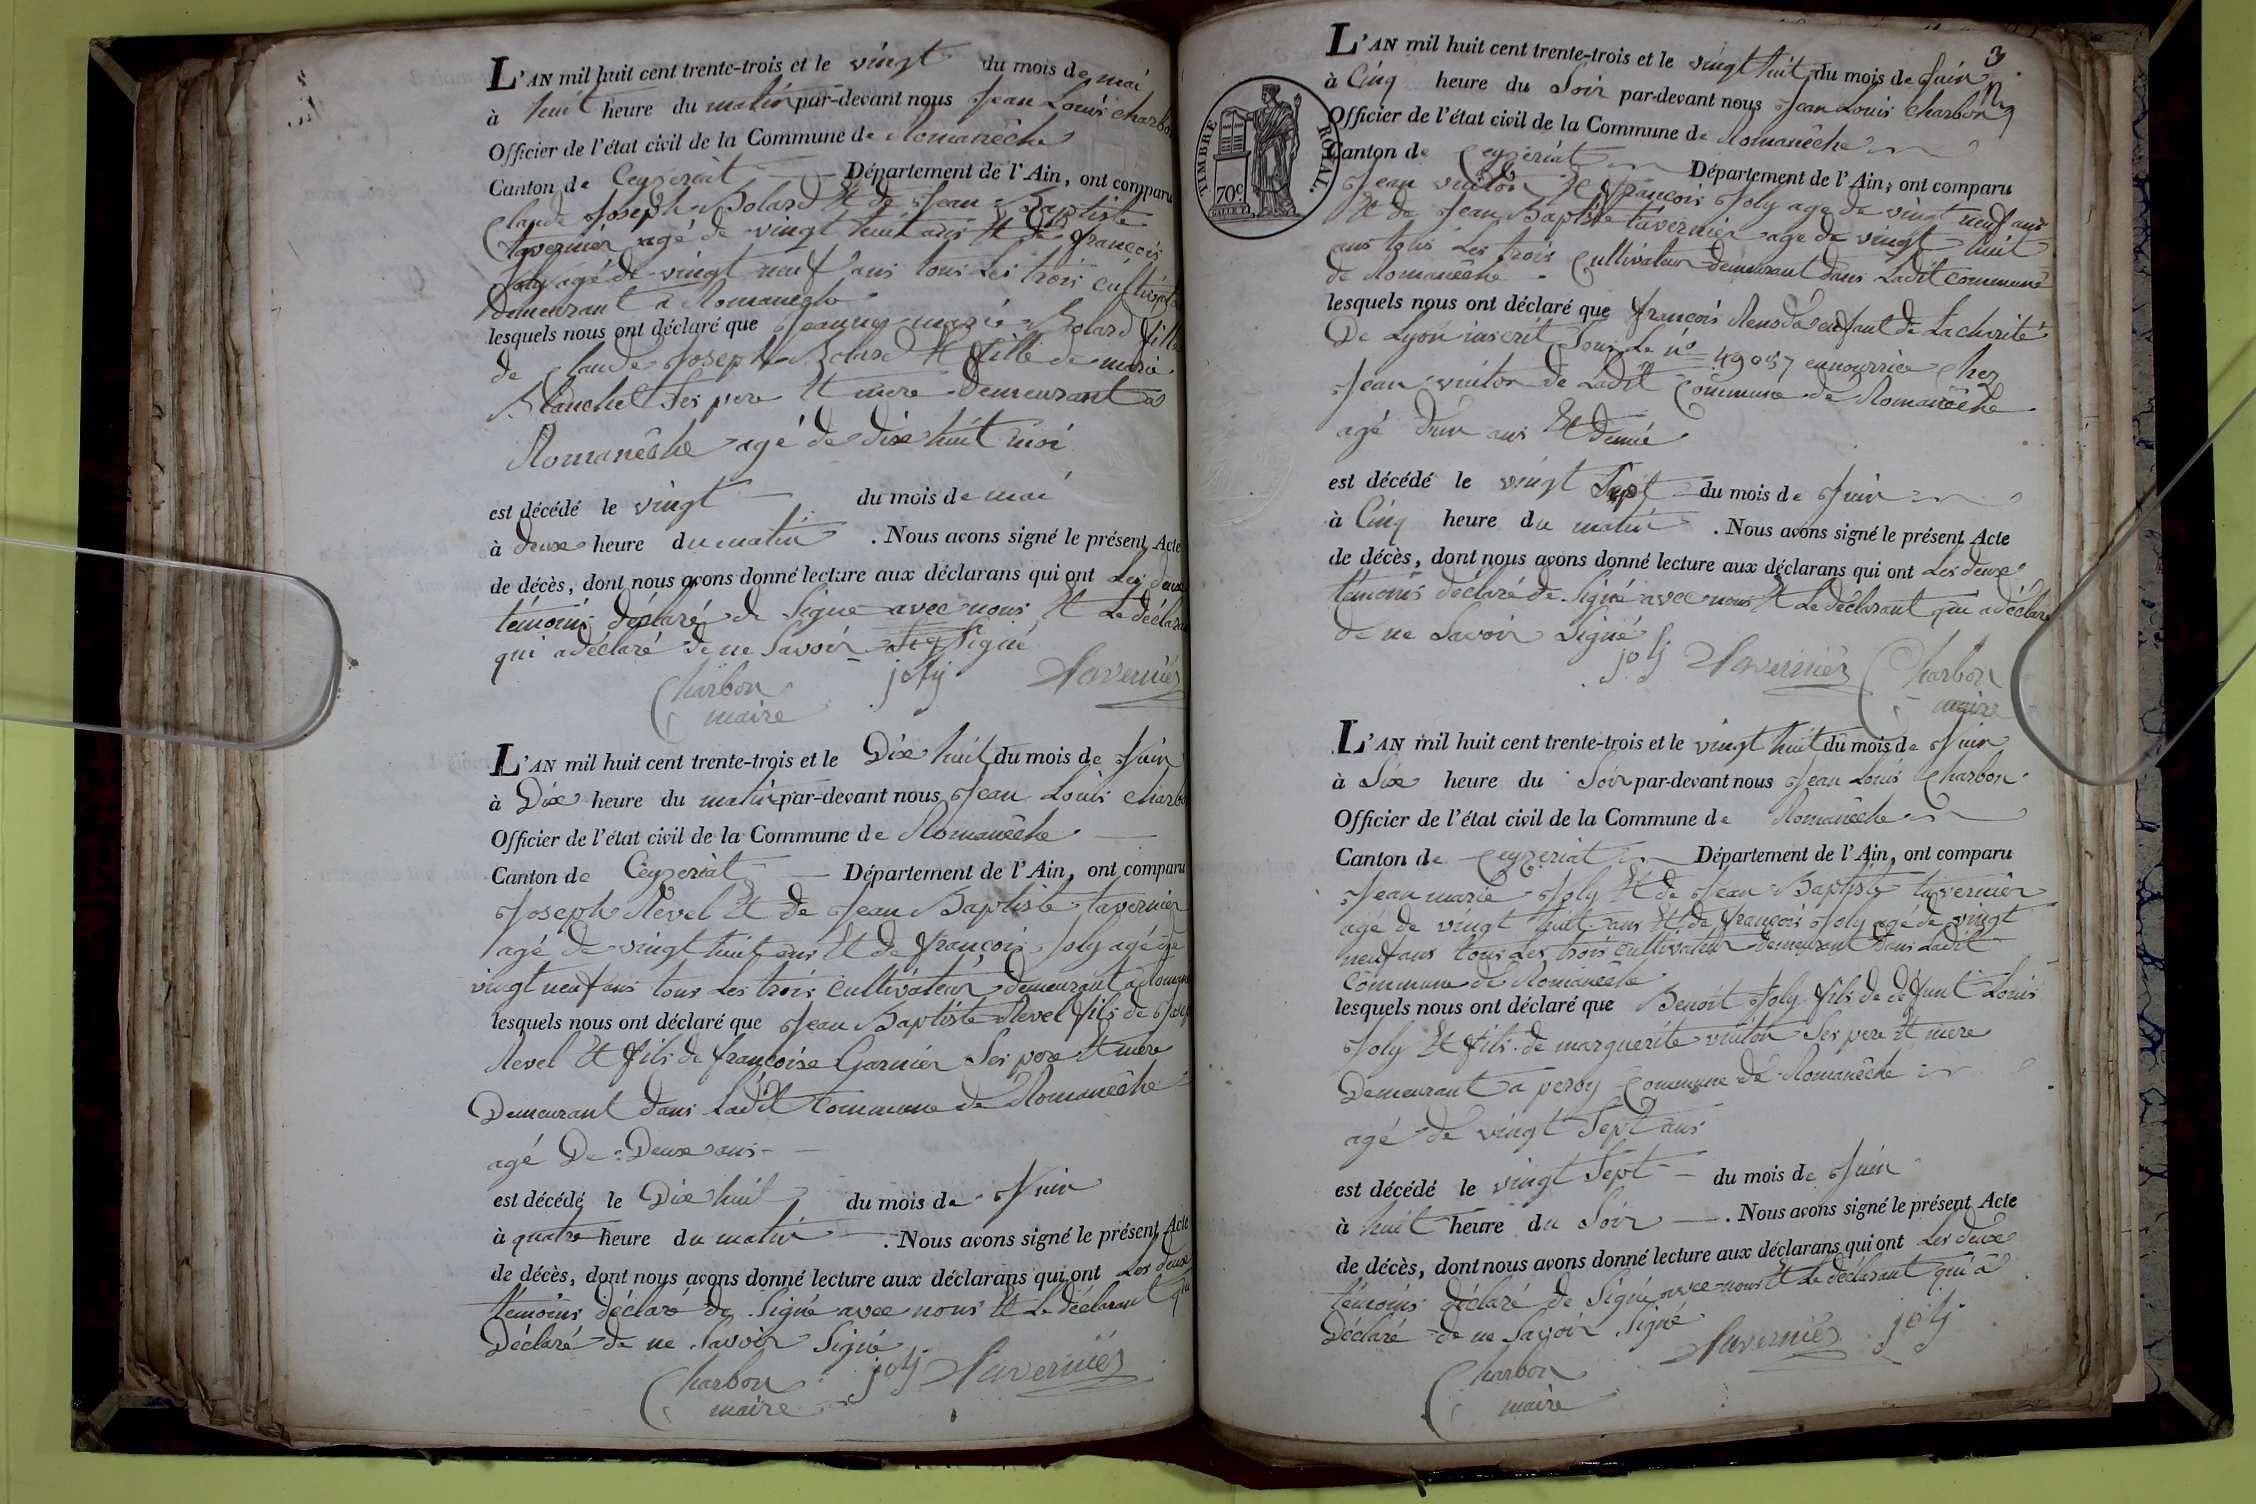 L'AN mil huit cent trente-trois et le vingt du mois de mai
à huit heure du matin par-devant nous Jean Louis charbon
Officier de l'état civil de la Commune de Romanêche
Canton de Ceyzeriat Département de l'Ain, ont comparu
Claude Joseph Bolard Et de Jean Baptiste
tavernier agé de vingt huit ans Et de françois
Joly agé de vingt neuf ans tous Les trois cultivateur
demeurant a Romaneche
lesquels nous ont déclaré que Jeanny marie Bolard fille
de Claude Joseph Bolard Et fille de marie
Blanchet Ses pere Et mere demeurant a
Romanêche agé de dixe huit moi
est décédé le vingt du mois de mai
à deuxe heure du matin . Nous avons signé le présent Acte
de décès, dont nous avons donné lecture aux déclarans qui ont Les deuxe
témoins déclaré de Signe avec nous Et Le déclarant
qui a déclaré de ne Savoir Signé
Charbon joly Tavernier
maire
L'AN mil huit cent trente-trois et le Dixe huit du mois de Juin
à Dixe heure du matin par-devant nous Jean Louis charbon
Officier de l'état civil de la Commune de Romanêche
Canton de Ceyzeriat Département de l'Ain, ont comparu
Joseph Revel Et de Jean Baptiste tavernier
agé de vingt huit ans Et de françois Joly agé de
vingt neuf ans tous Les trois cultivateur demeurant a Romaneche
lesquels nous ont déclaré que Jean Baptiste Revel fils de Joseph
Revel Et fils de françoise Garnier Ses pere Et mere
Demeurant dans Ladit Commune de Romanêche
agé De Deuxe ans
est décédé le Dixe huit du mois de Juin
à quatre heure du matin . Nous avons signé le présent Acte
de décès, dont nous avons donné lecture aux déclarans qui ont Les deuxe
témoins déclaré de Signé avec nous Et Le déclarant qui
Déclaré de ne Savoir Signé
Charbon joly Tavernier
maire
3
L'AN mil huit cent trente-trois et le vingt huit du mois de Juin
à Cinq heure du Soir par-devant nous Jean Louis Charbon
Officier de l'état civil de la Commune de Romanêche
Canton de Ceyzeriat Département de l'Ain, ont comparu
TIMBRE ROYAL.
70c.
Jean vuiton Et françois Joly age de vingt neuf ans
Et de Jean Baptiste tavernier age de vingt huit
ans tous Les trois Cultivateur demeurant dans Ladit commune
de Romanêche
lesquels nous ont déclaré que françois enfant de La charité
De Lyon inscrit Sous Le no 49057 en nourrice Chez
Jean vuiton de Ladit Commune de Romanêche
agé d'un ans Et demie
est décédé le vingt Sept du mois de Juin
à Cinq heure du matin . Nous avons signé le présent Acte
de décès, dont nous avons donné lecture aux déclarans qui ont Les deuxe
témoins déclaré de Signé avec nous Et Le déclarant qui a déclaré
de ne Savoir Signé
joly Tavernier Charbon
maire
L'AN mil huit cent trente-trois et le vingt huit du mois de Juin
à Sixe heure du Soir par-devant nous Jean Louis Charbon
Officier de l'état civil de la Commune de Romanêche
Canton de Ceyzeriat Département de l'Ain, ont comparu
Jean marie Joly Et de Jean Baptiste tavernier
agé de vingt huit ans Et de françois Joly agé de vingt
neuf ans tous Les trois cultivateur demeurant dans Ladit
Commune de Romanêche
lesquels nous ont déclaré que Benoit Joly fils de défunt Louis
Joly Et fils de marguerite vuiton Ses pere Et mere
Demeurant a Commune de Romanêche
agé de vingt Sept ans
est décédé le vingt Sept du mois de Juin
à huit heure du Soir . Nous avons signé le présent Acte
de décès, dont nous avons donné lecture aux déclarans qui ont Les deuxe
témoins déclaré de Signé avec nous Et Le déclarant qui a
Déclaré de ne Savoir Signé
Charbon Tavernier joly
maire